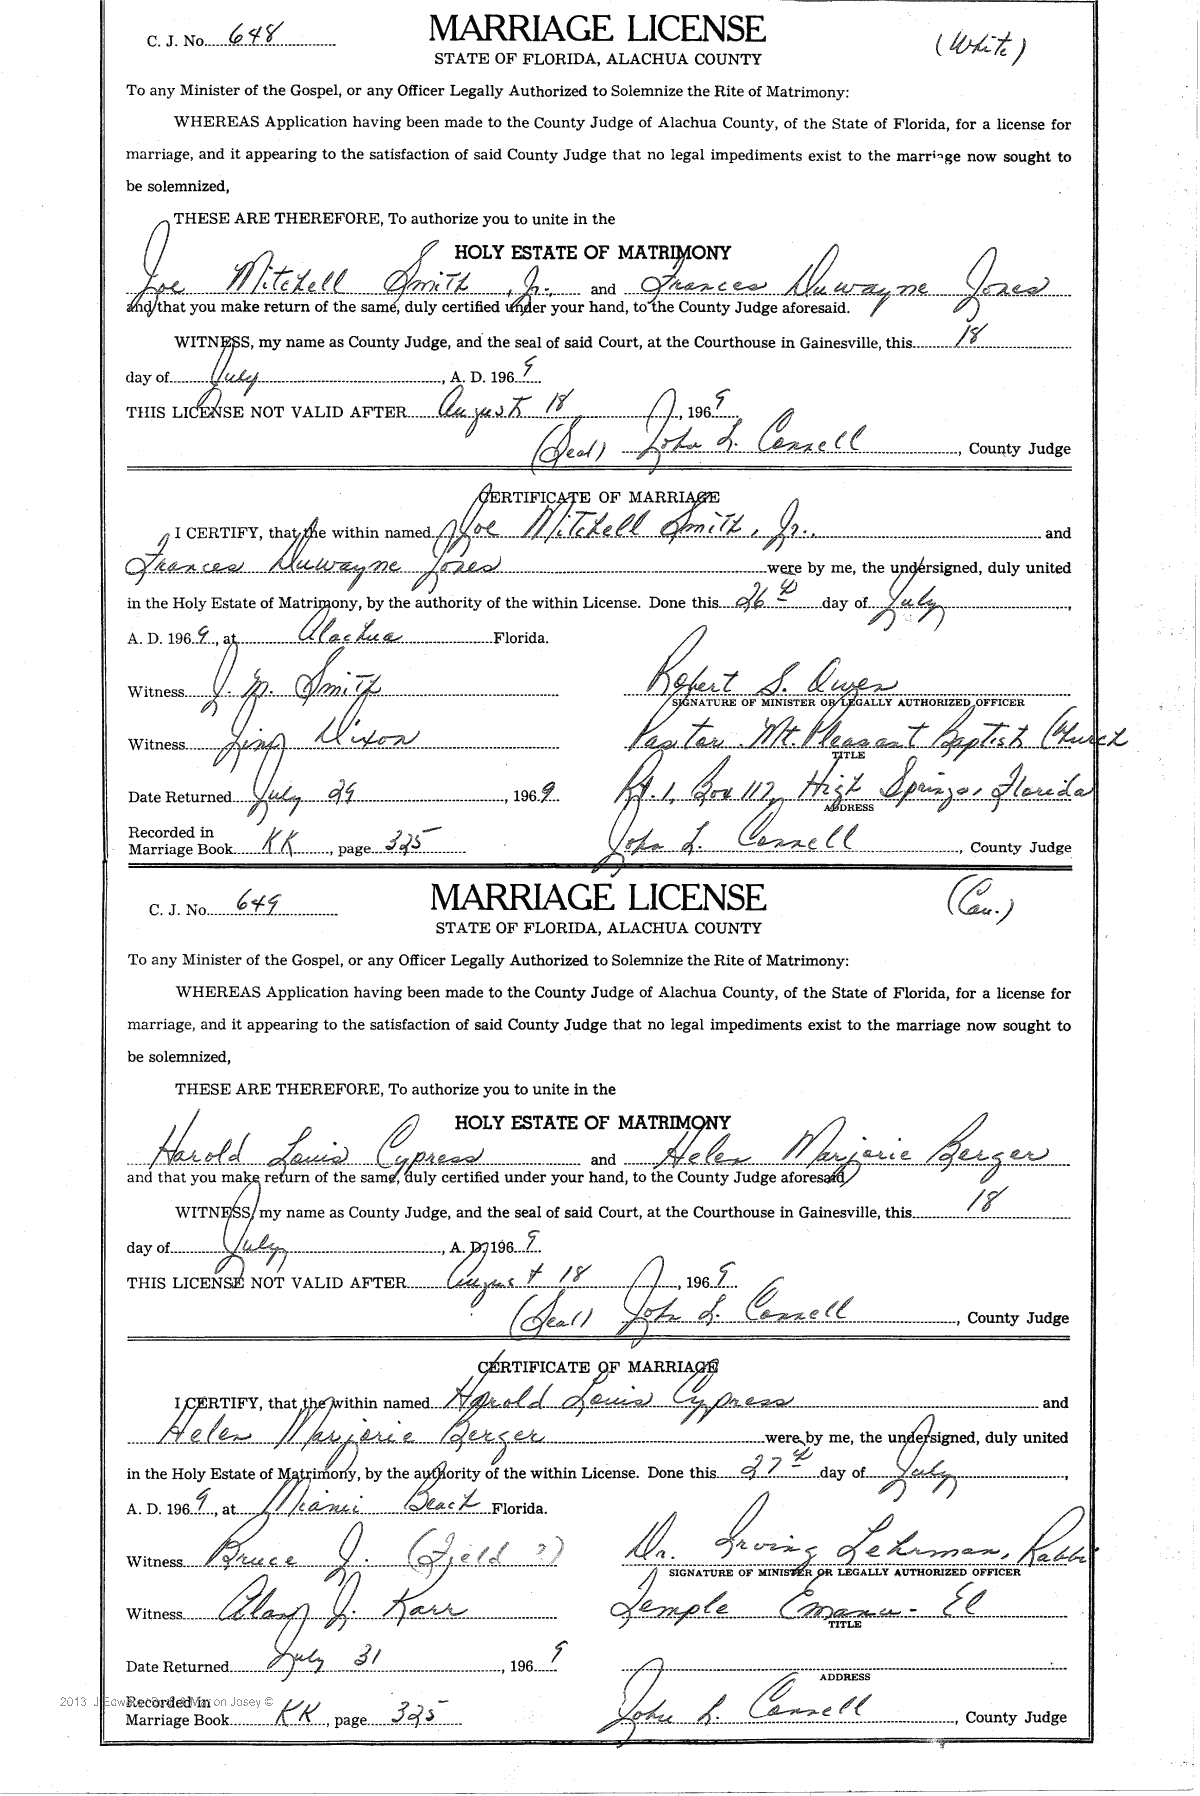 C. J. No. 648 MARRIAGE LICENSE (White)
STATE OF FLORIDA, ALACHUA COUNTY
To any Minister of the Gospel, or any Officer Legally Authorized to Solemnize the Rite of Matrimony:
WHEREAS Application having been made to the County Judge of Alachua County, of the State of Florida, for a license for
marriage, and it appearing to the satisfaction of said County Judge that no legal impediments exist to the marriage now sought to
be solemnized,
THESE ARE THEREFORE, To authorize you to unite in the
HOLY ESTATE OF MATRIMONY
Joe Mitchell Smith, Jr., and Frances Duwayne Jones
and that you make return of the same, duly certified under your hand, to the County Judge aforesaid.
WITNESS, my name as County Judge, and the seal of said Court, at the Courthouse in Gainesville, this 18
day of July, A. D. 1969
THIS LICENSE NOT VALID AFTER August 18, 1969
(Seal) John L. Connell, County Judge
CERTIFICATE OF MARRIAGE
I CERTIFY, that the within named Joe Mitchell Smith, Jr., and
Frances Duwayne Jones were by me, the undersigned, duly united
in the Holy Estate of Matrimony, by the authority of the within License. Done this 26th day of July,
A. D. 1969, at Alachua Florida.
Witness J. M. Smith Robert S. Owen
SIGNATURE OF MINISTER OR LEGALLY AUTHORIZED OFFICER
Witness Dixon Pastor. Mt. Pleasant Baptist Church
TITLE
Date Returned July 29, 1969 Rt. 1, Box 112, High Springs, Florida
ADDRESS
Recorded in
Marriage Book KK, page 325 John L. Connell, County Judge
C. J. No. 649 MARRIAGE LICENSE (Cau.)
STATE OF FLORIDA, ALACHUA COUNTY
To any Minister of the Gospel, or any Officer Legally Authorized to Solemnize the Rite of Matrimony:
WHEREAS Application having been made to the County Judge of Alachua County, of the State of Florida, for a license for
marriage, and it appearing to the satisfaction of said County Judge that no legal impediments exist to the marriage now sought to
be solemnized,
THESE ARE THEREFORE, To authorize you to unite in the
HOLY ESTATE OF MATRIMONY
Harold Louis Cypress and Helen Marjorie Berger
and that you make return of the same, duly certified under your hand, to the County Judge aforesaid.
WITNESS, my name as County Judge, and the seal of said Court, at the Courthouse in Gainesville, this 18
day of July, A. D. 1969
THIS LICENSE NOT VALID AFTER August 18, 1969
(Seal) John L. Connell, County Judge
CERTIFICATE OF MARRIAGE
I CERTIFY, that the within named Harold Louis Cypress and
Helen Marjorie Berger were by me, the undersigned, duly united
in the Holy Estate of Matrimony, by the authority of the within License. Done this 27th day of July,
A. D. 1969, at Miami Beach Florida.
Witness Bruce J. (Field ?) Dr. Irving Lehrman, Rabbi
SIGNATURE OF MINISTER OR LEGALLY AUTHORIZED OFFICER
Witness Alan J. Karr Temple Emanu-El
TITLE
Date Returned July 31, 1969
ADDRESS
Recorded in
Marriage Book KK, page 325 John L. Connell, County Judge